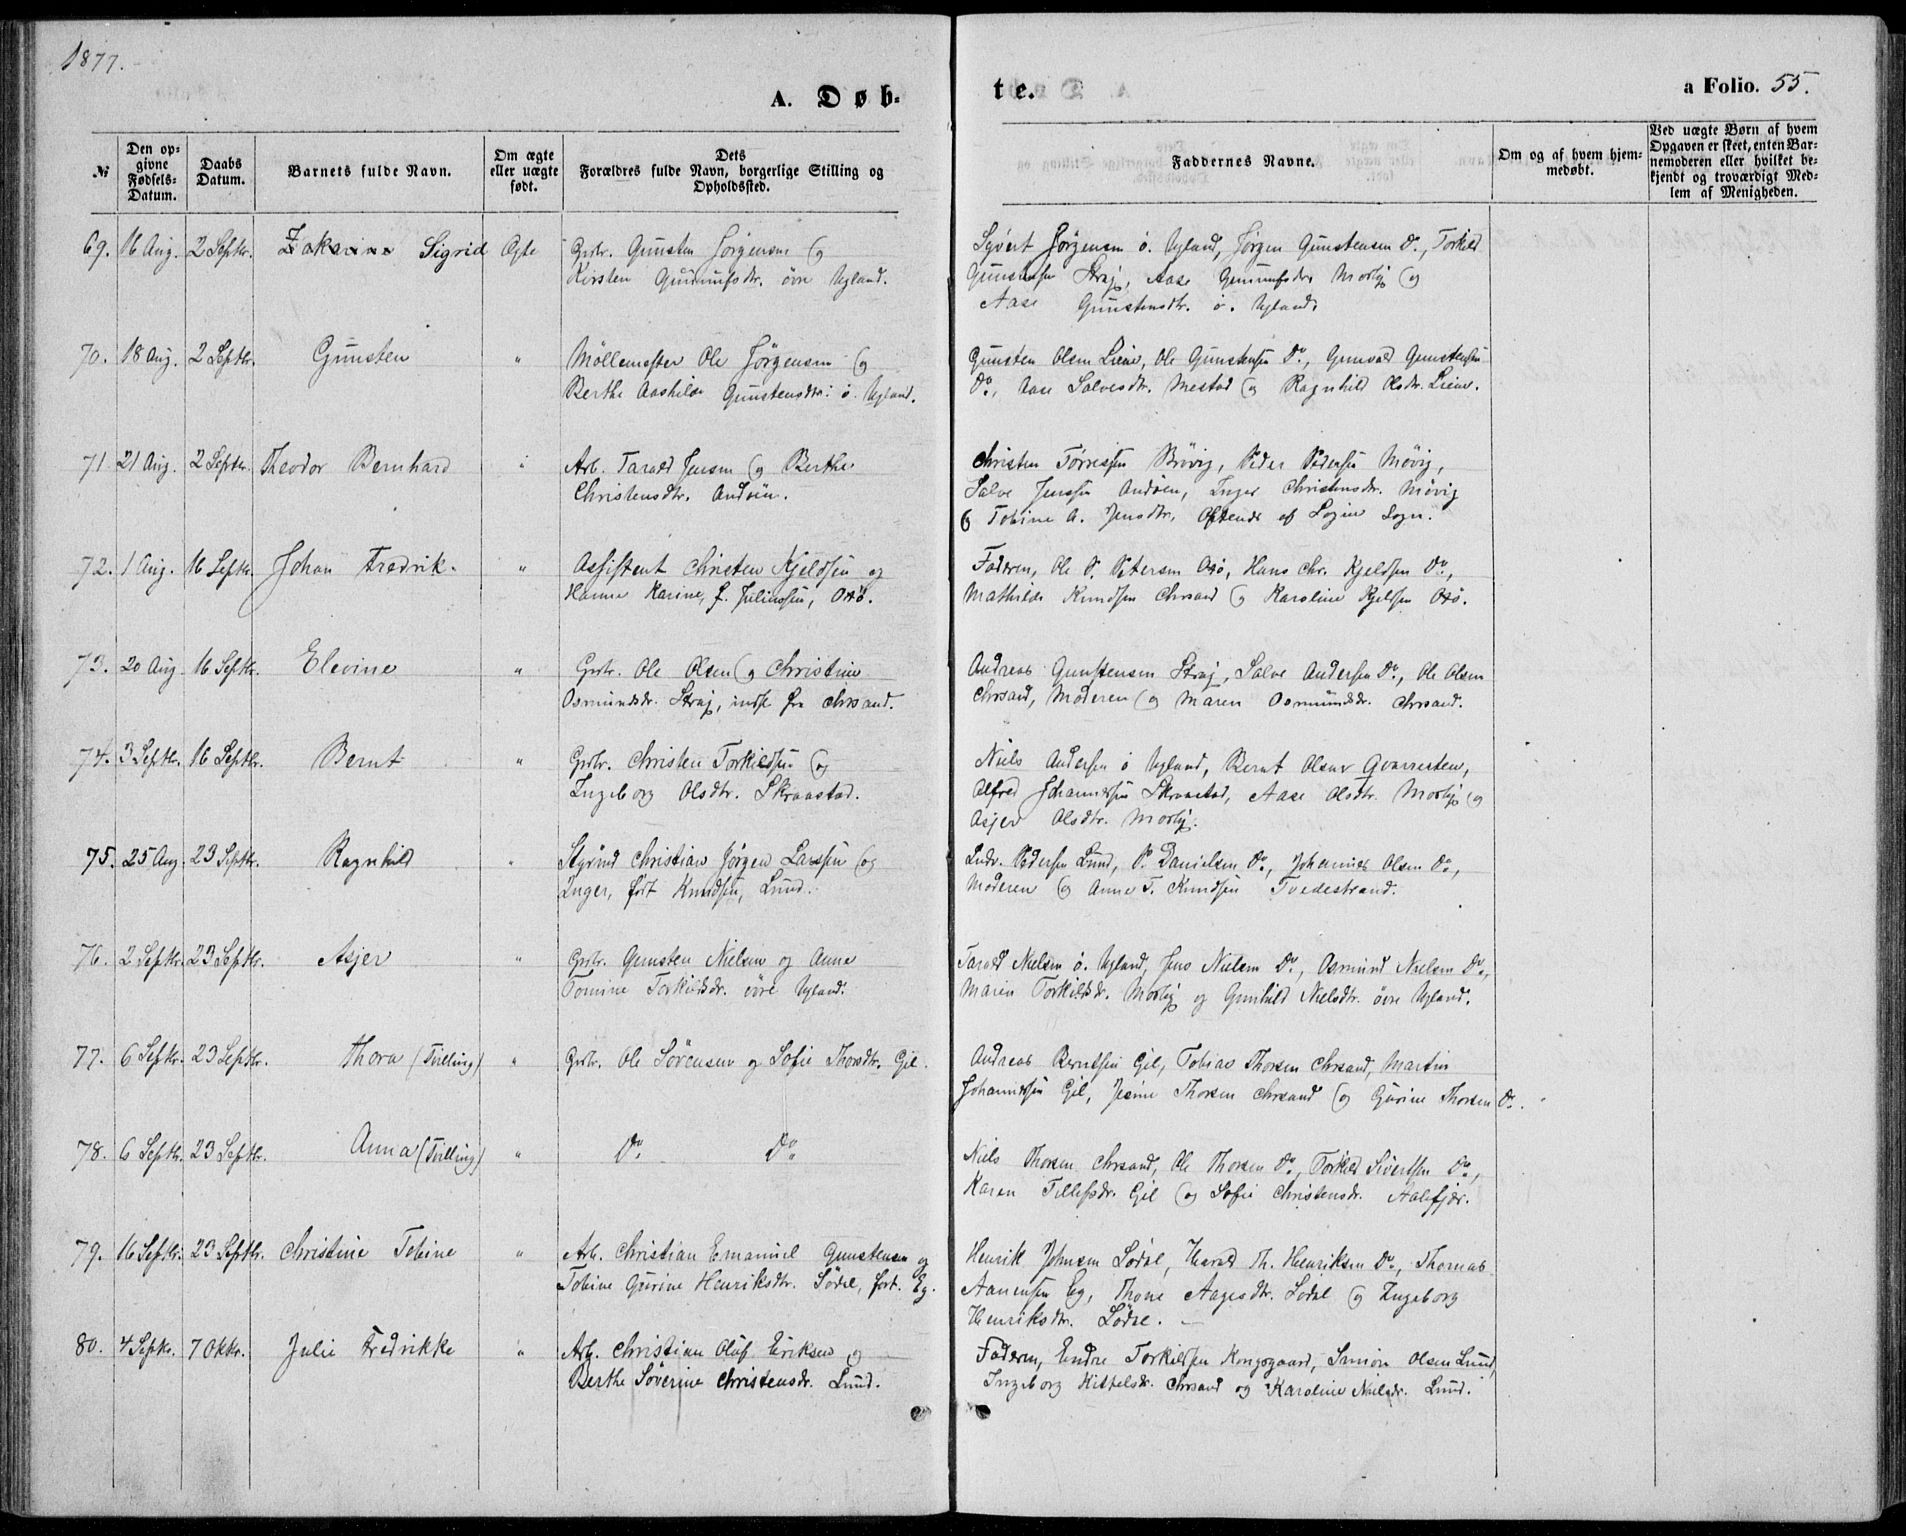 1877.
A. Døb-
te.
a Folio. 55.
№
Den op-
givne
Fødsels-
Datum.
Daabs
Datum.
Barnets fulde Navn.
Om ægte
eller uægte
født.
Dets
Forældres fulde Navn, borgerlige Stilling og
Opholdssted.
Faddernes Navne.
Om og af hvem hjem-
medøbt.
Ved uægte Børn af hvem
Opgaven er skeet, enten Bar-
nemoderen eller hvilket be-
kjendt og troværdigt Med-
lem af Menigheden.
69. 16 Aug. 2 Septbr. Sigrid Ægte Grbr. Gunsten Jørgensen og
Kirsten Gunnufsdtr. övre Ugland.
Syvert Jörgensen ö. Ugland, Jörgen Gunstensen Do., Torkild
Gunstensen Straj, Aase Gunnufsdtr Mosbÿ og
Aase Gunstensdtr. ö. Ugland.
70. 18 Aug. 2 Septbr. Gunsten " Möllemester Ole Jörgensen og
Berthe Aashilde Gunstensdtr. ö. Ugland.
Gunsten Olsen Liene, Ole Gunstensen Do., Gunvald Gunstensen
Do., Aase Salvesdtr. Mestad og Ragnhild Olsdtr. Liene.
71. 21 Aug. 2 Septbr. Theodor Bernhard " Arb. Tarald Jensen og Berthe
Christensdtr. Andöen.
Christen Törressen Bövig, Peder Pedersen Mövig,
Salve Jenssen Andöen, Inger Christensdtr. Mövig
og Tobine A. Jensdtr. Oftenes af Sogne Sogn.
72. 1 Aug. 16 Septbr. Johan Fredrik. " Assistent Christen Kjeldsen og
Hanne Karine, f. Juliussen, Odö.
Faderen, Ole P. Petersen Odö, Hans Chr. Kjeldsen Do.,
Mathilde Knudsen Chrsand og Karoline Kjelsen Odö.
73. 20 Aug. 16 Septbr. Elevine " Grbr. Ole Olsen og Christine
Osmundsdr. Straj, indf. fra Chrsand.
Andreas Gunstensen Straj, Salve Andersen Do., Ole Olsen
Chrsand, Moderen og Maren Osmundsdr. Chrsand.
74. 3 Septbr. 16 Septbr. Bernt " Grbr. Christen Torkildsen og
Ingeborg Olsdtr. Skraastad.
Niels Andersen ö Ugland, Bernt Olsen Qvarsten,
Alfred Johannessen Skraastad, Aase Olsdtr. Mosbÿ og
Asjer Olsdtr. Mosbÿ.
75. 25 Aug. 23 Septbr. Ragnhild " Styrmd Christian Jörgen Larssen og
Inger, født Knudsen, Lund.
Ludv. Pedersen Lund, P. Danielsen Do., Johannes Olsen Do.,
Moderen og Anne T. Knudsen Tvedestrand.
76. 2 Septbr. 23 Septbr. Asjer " Grbr. Gunsten Nielsen og Anne
Tomine Torkildsdr. övre Ugland.
Tarald Nielsen ö. Ugland, Jens Nielsen Do., Osmund Nielsen Do.,
Maren Torkildsdr. Mosbÿ og Gunhild Nielsdtr. övre Ugland.
77. 6 Septbr. 23 Septbr. Thora (Tvilling) " Grbr. Ole Sörensen og Sofie Thorsdtr. Gil.
Andreas Berntsen Gil, Tobias Thorsen Chrsand, Martin
Johannessen Gil, Jesine Thorsen Chrsand og Gurine Thorsen Do.
78. 6 Septbr. 23 Septbr. Anna (Tvilling) " Do. Do.
Niels Thorsen Chrsand, Ole Thorsen Do., Torkild Sivertsen Do.,
Karen Tellefsdr. Gil og Sofie Christensdr. Aalefjær.
79. 16 Septbr. 23 Septbr. Christine Tobine " Arb. Christian Emanuel Gunstensen og
Tobine Gurine Henriksdtr. Södal, fort. Eg.
Henrik Johnsen Södal, Harald Th. Henriksen Do., Thomas
Aanensen Eg, Thone Aagesdtr. Södal og Ingeborg
Henriksdtr. Södal.
80. 4 Septbr. 7 Oktbr. Julie Fredrikke " Arb. Christian Oluf Eriksen og
Berthe Söverine Christensdr. Lund.
Faderen, Endre Torkildsen Kongsgaard, Simon Olsen Lund,
Ingeborg Kittelsdr. Chrsand og Karoline Nielsdr. Lund.